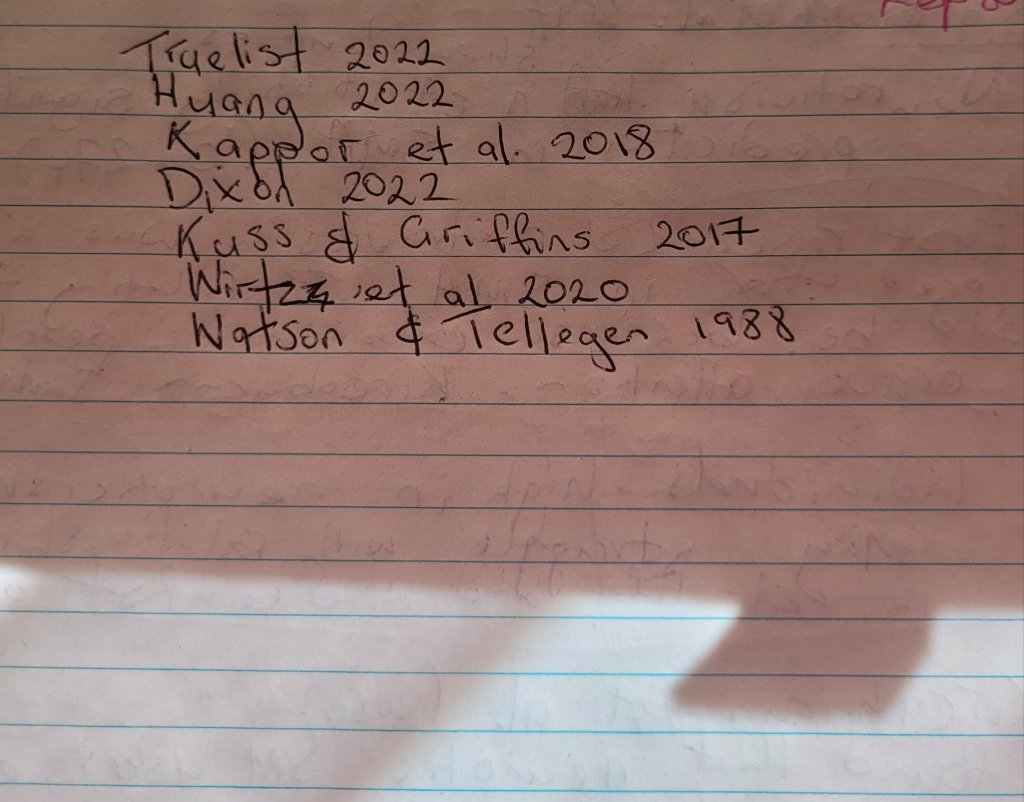 Truelist 2022
Huang 2022
Kappor et al. 2018
Dixon 2022
Kuss & Griffins 2017
Wirtz et al 2020
Watson & Tellegen 1988